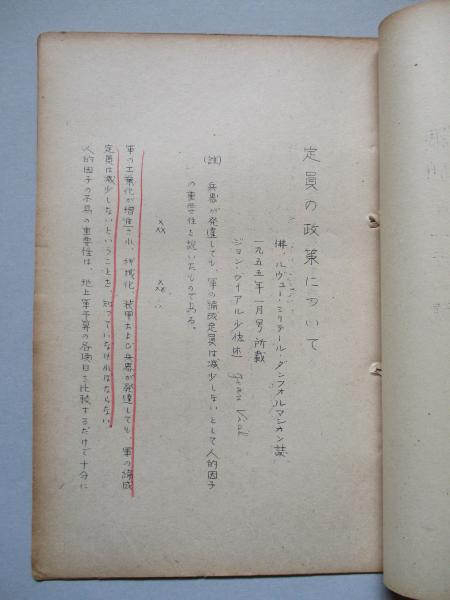 定員の政策について
佛、ルヴュー・ミリテール・ダンフォルマシオン誌
一九五五年一月号所載
ジョン・ヴィアル少佐述 Jean Vial
(註) 兵器が発達しても、軍の編成定員は減少しないとして人的因子
の重要性を説いたものである。
××× ×××
軍の工業化が増進され、機械化、装甲および兵器が発達しても、軍の編成
定員は減少しないということを知っていなければならない。
人的因子の不易の重要性は、地上軍予算の各項目を比較するだけで十分に